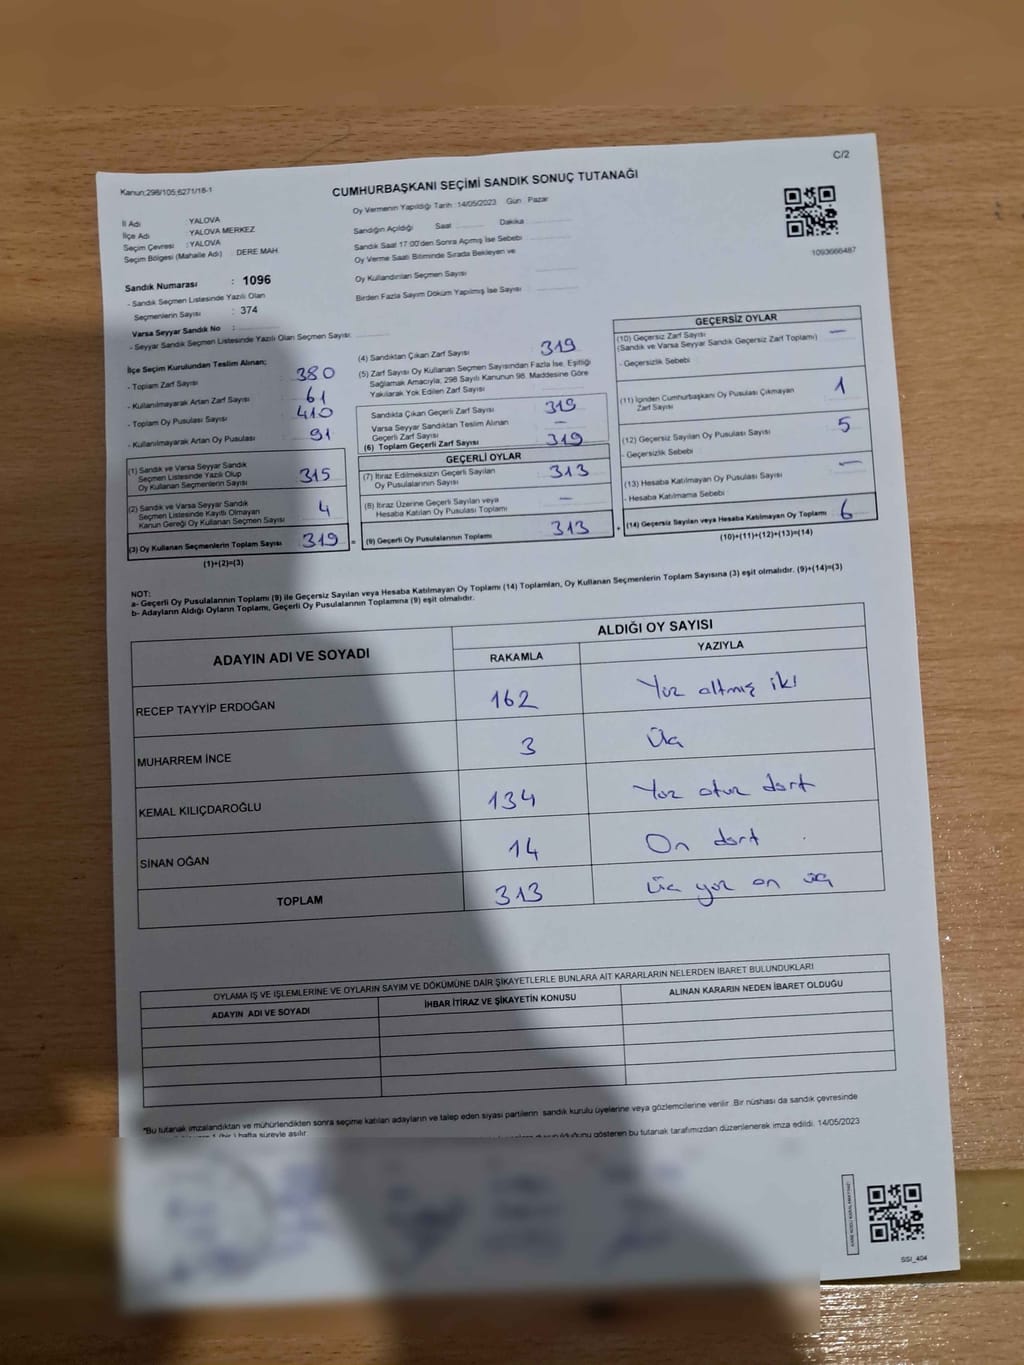 C/2
Kanun;298/105;6271/18-1
CUMHURBAŞKANI SEÇİMİ SANDIK SONUÇ TUTANAĞI
Oy Vermenin Yapıldığı Tarih : 14/05/2023 Gün : Pazar
İl Adı : YALOVA
İlçe Adı : YALOVA MERKEZ
Seçim Çevresi : YALOVA
Seçim Bölgesi (Mahalle Adı) : DERE MAH.
Sandık Numarası : 1096
- Sandık Seçmen Listesinde Yazılı Olan
Seçmenlerin Sayısı : 374
Varsa Seyyar Sandık No :
- Seyyar Sandık Seçmen Listesinde Yazılı Olan Seçmen Sayısı:
Sandığın Açıldığı Saat Dakika
Sandık Saat 17.00'den Sonra Açımış İse Sebebi
Oy Verme Saati Bitiminde Sırada Bekleyen ve
Oy Kullandırılan Seçmen Sayısı
Birden Fazla Sayım Döküm Yapılmış İse Sayısı :
1093666487
İlçe Seçim Kurulundan Teslim Alınan;
- Toplam Zarf Sayısı : 380
- Kullanılmayarak Artan Zarf Sayısı : 61
- Toplam Oy Pusulası Sayısı : 410
- Kullanılmayarak Artan Oy Pusulası : 91
(1) Sandık ve Varsa Seyyar Sandık
Seçmen Listesinde Yazılı Olup
Oy Kullanan Seçmenlerin Sayısı : 315
(2) Sandık ve Varsa Seyyar Sandık
Seçmen Listesinde Kayıtlı Olmayan
Kanun Gereği Oy Kullanan Seçmen Sayısı : 4
(3) Oy Kullanan Seçmenlerin Toplam Sayısı : 319 =
(1)+(2)=(3)
(4) Sandıktan Çıkan Zarf Sayısı : 319
(5) Zarf Sayısı Oy Kullanan Seçmen Sayısından Fazla İse, Eşitliği
Sağlamak Amacıyla, 298 Sayılı Kanunun 98. Maddesine Göre
Yakılarak Yok Edilen Zarf Sayısı
Sandıkta Çıkan Geçerli Zarf Sayısı : 319
Varsa Seyyar Sandıktan Teslim Alınan
Geçerli Zarf Sayısı : —
(6) Toplam Geçerli Zarf Sayısı : 319
GEÇERLİ OYLAR
(7) İtiraz Edilmeksizin Geçerli Sayılan
Oy Pusulalarının Sayısı : 313
(8) İtiraz Üzerine Geçerli Sayılan veya
Hesaba Katılan Oy Pusulası Toplamı : —
(9) Geçerli Oy Pusulalarının Toplamı : 313 +
GEÇERSİZ OYLAR
(10) Geçersiz Zarf Sayısı : —
(Sandık ve Varsa Seyyar Sandık Geçersiz Zarf Toplamı)
- Geçersizlik Sebebi
(11) İçinden Cumhurbaşkanı Oy Pusulası Çıkmayan
Zarf Sayısı : 1
(12) Geçersiz Sayılan Oy Pusulası Sayısı : 5
- Geçersizlik Sebebi
(13) Hesaba Katılmayan Oy Pusulası Sayısı : —
- Hesaba Katılmama Sebebi
(14) Geçersiz Sayılan veya Hesaba Katılmayan Oy Toplamı : 6
(10)+(11)+(12)+(13)=(14)
NOT:
a- Geçerli Oy Pusulalarının Toplamı (9) ile Geçersiz Sayılan veya Hesaba Katılmayan Oy Toplamı (14) Toplamları, Oy Kullanan Seçmenlerin Toplam Sayısına (3) eşit olmalıdır. (9)+(14)=(3)
b- Adayların Aldığı Oyların Toplamı, Geçerli Oy Pusulalarının Toplamına (9) eşit olmalıdır.
ADAYIN ADI VE SOYADI
ALDIĞI OY SAYISI
RAKAMLA YAZIYLA
RECEP TAYYİP ERDOĞAN 162 Yüz altmış iki
MUHARREM İNCE 3 Üç
KEMAL KILIÇDAROĞLU 134 Yüz otuz dört
SİNAN OĞAN 14 On dört
TOPLAM 313 Üç yüz on üç
OYLAMA İŞ VE İŞLEMLERİNE VE OYLARIN SAYIM VE DÖKÜMÜNE DAİR ŞİKAYETLERLE BUNLARA AİT KARARLARIN NELERDEN İBARET BULUNDUKLARI
ADAYIN ADI VE SOYADI İHBAR İTİRAZ VE ŞİKAYETİN KONUSU ALINAN KARARIN NEDEN İBARET OLDUĞU
*Bu tutanak imzalandıktan ve mühürlendikten sonra seçime katılan adayların ve talep eden siyasi partilerin sandık kurulu üyelerine veya gözlemcilerine verilir. Bir nüshası da sandık çevresinde
1 (bir) hafta süreyle asılır. gösteren bu tutanak tarafımızdan düzenlenerek imza edildi. 14/05/2023
SSI_404